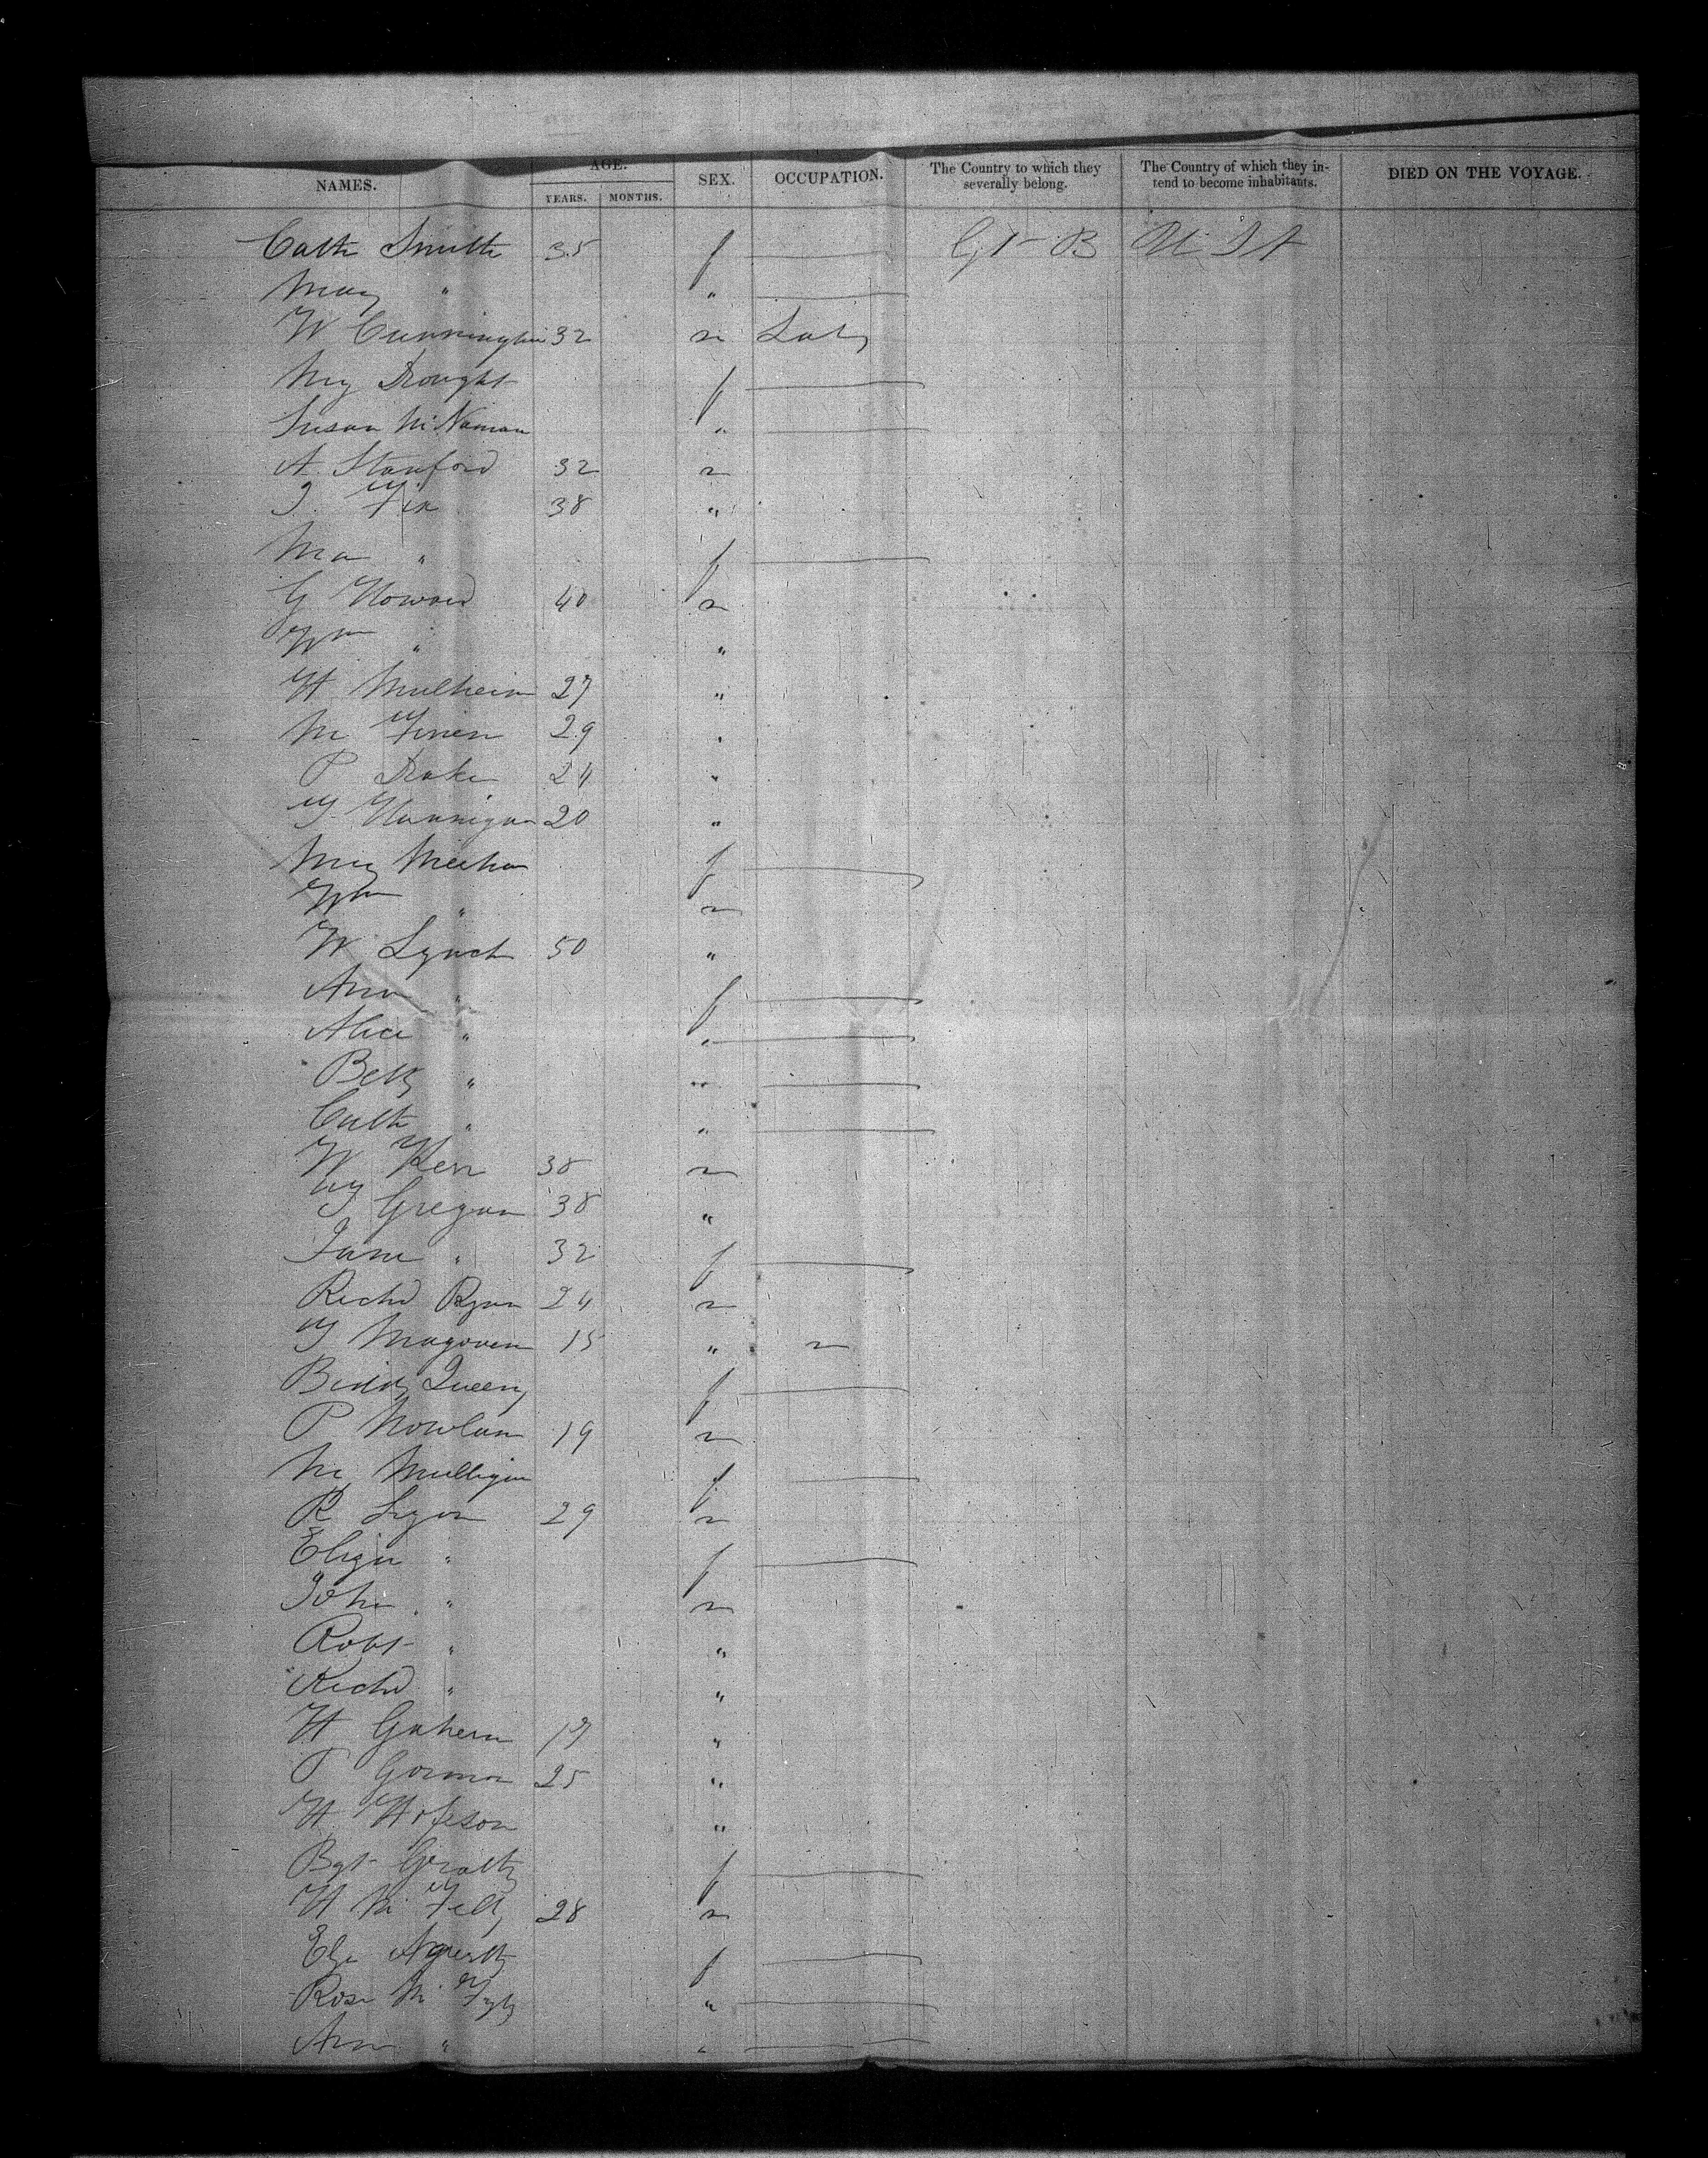 NAMES. AGE. SEX. OCCUPATION. The Country to which they severally belong. The Country of which they intend to become inhabitants. DIED ON THE VOYAGE.
YEARS. MONTHS.
Cath Smith 35 f Gt B U St
Mary " "
W Cunningham 32 m Lab
My Drought f
Susan McNamara "
A. Stanford 32 m
J. Fix 38 "
Ma " f
G Howard 40 m
Wm " "
H Mulhein 27 "
M Finen 29 "
P Drake 24 "
J Hannigan 20 "
My Meehan f
Wm " m
W Lynch 50 "
Ann " f
Alice " "
Betty " "
Cath " "
W Kerr 38 m
J Gregan 38 "
Jane " 32 f
Richd Ryan 24 m
J Magoven 15 "
Biddy Queeny f
P Nowlan 19 m
M Mulligan f
R Lyon 29 m
Eliza " f
John " m
Robt " "
Richd " "
H Gahern 19 "
T Gorman 25 "
H "
Bgt Geraty f
H Mc Felly 28 m
Elz f
Rose Mc "
Ann " "